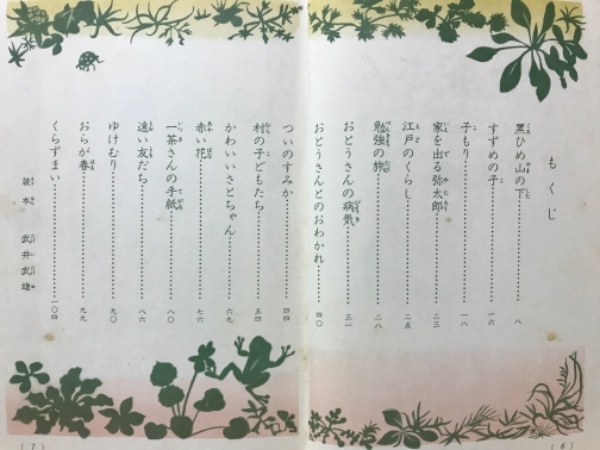 もくじ
黒ひめ山の下 八
すずめの子 一六
子もり 一八
家を出る弥太郎 二三
江戸のくらし 二五
勉強の旅 二八
おとうさんの病気 三一
おとうさんとのおわかれ 四〇
ついのすみか 四四
村の子どもたち 五四
かわいいさとちゃん 六九
赤い花 七六
一茶さんの手紙 八〇
遠い友だち 八六
ゆけむり 九〇
おらが春 九九
くらずまい 一〇四
装本 武井武雄
(7)
(6)